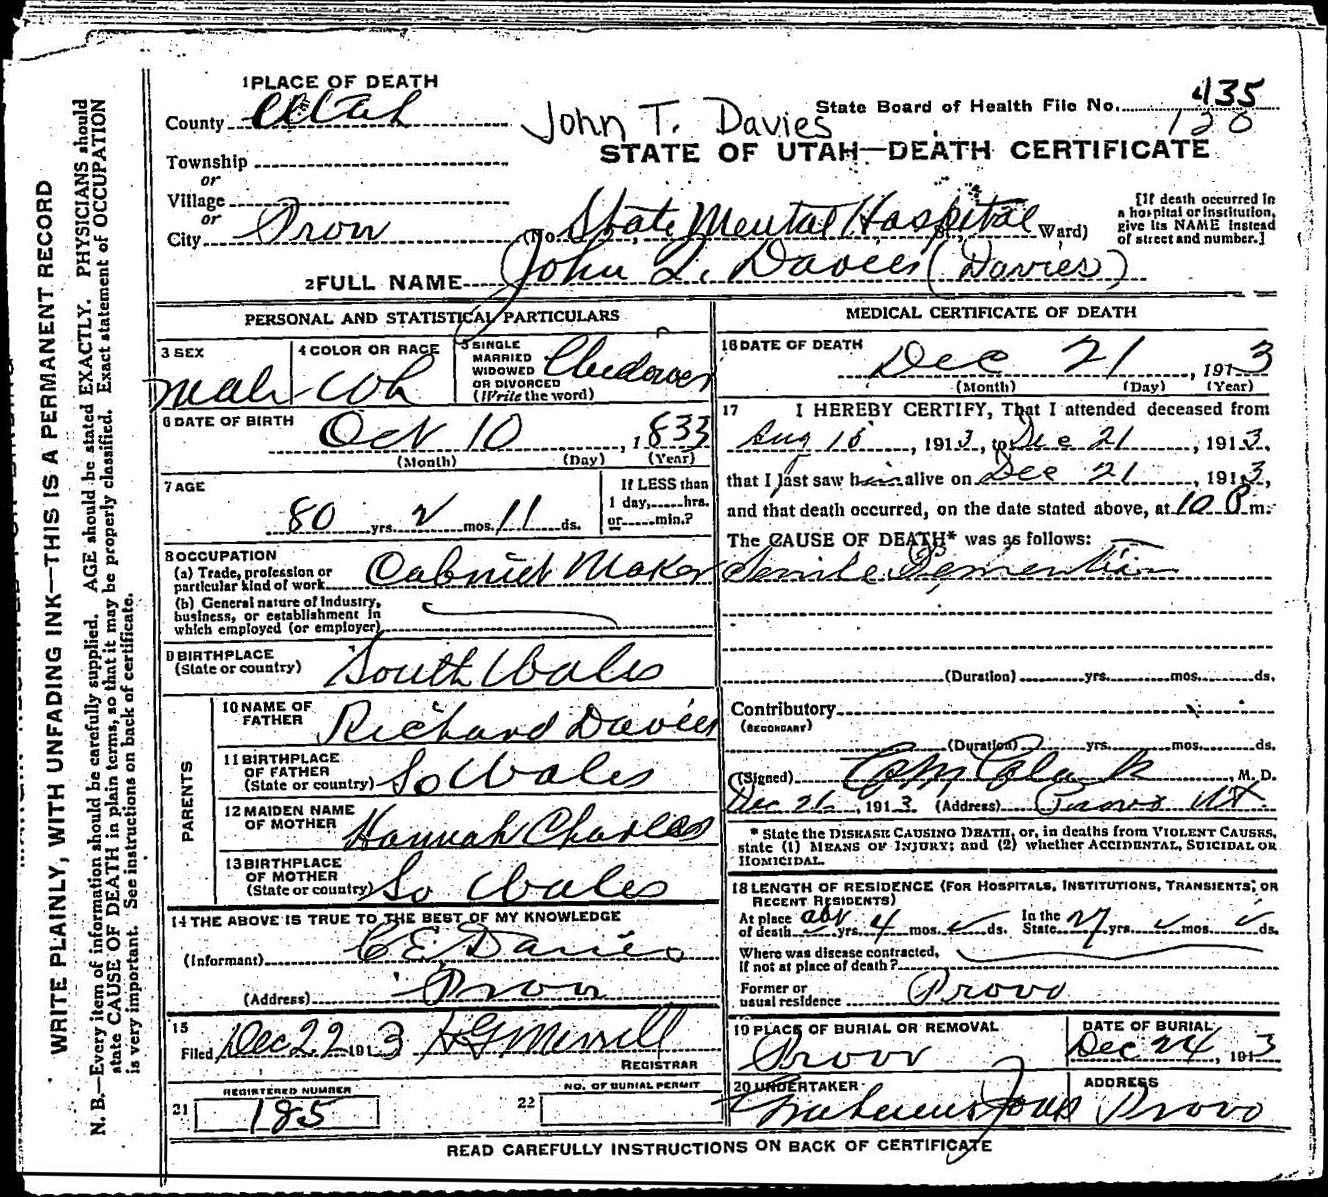 1 PLACE OF DEATH
County Utah
John T. Davies
State Board of Health File No. 435
138
STATE OF UTAH—DEATH CERTIFICATE
Township
or
Village
or
City Provo
(No. State Mental Hospital St., Ward)
[If death occurred in
a hospital or institution,
give its NAME instead
of street and number.]
2 FULL NAME John T. Davies (Davies)
PERSONAL AND STATISTICAL PARTICULARS
3 SEX
male
4 COLOR OR RACE
Wh
5 SINGLE
MARRIED
WIDOWED
OR DIVORCED
(Write the word)
Widower
6 DATE OF BIRTH
Oct 10, 1833
(Month) (Day) (Year)
7 AGE
80 yrs. 2 mos. 11 ds.
If LESS than
1 day,......hrs.
or......min.?
8 OCCUPATION
(a) Trade, profession or
particular kind of work Cabniet Maker
(b) General nature of industry,
business, or establishment in
which employed (or employer)
9 BIRTHPLACE
(State or country) South Wales
PARENTS
10 NAME OF
FATHER Richard Davies
11 BIRTHPLACE
OF FATHER
(State or country) So Wales
12 MAIDEN NAME
OF MOTHER Hannah Charles
13 BIRTHPLACE
OF MOTHER
(State or country) So Wales
14 THE ABOVE IS TRUE TO THE BEST OF MY KNOWLEDGE
(Informant) C E Davies
(Address) Provo
15
Filed Dec 22 1913 H G Merrill
REGISTRAR
21 REGISTERED NUMBER
185
22 NO. OF BURIAL PERMIT
MEDICAL CERTIFICATE OF DEATH
16 DATE OF DEATH
Dec 21, 1913
(Month) (Day) (Year)
17 I HEREBY CERTIFY, That I attended deceased from
Aug 18, 1913, to Dec 21, 1913,
that I last saw him alive on Dec 21, 1913,
and that death occurred, on the date stated above, at 10 P m.
The CAUSE OF DEATH* was as follows:
Senile Dementia
(Duration) yrs. mos. ds.
Contributory
(SECONDARY)
(Duration) yrs. mos. ds.
(Signed) Clark, M. D.
Dec 21, 1913 (Address) Provo Ut.
* State the DISEASE CAUSING DEATH, or, in deaths from VIOLENT CAUSES,
state (1) MEANS OF INJURY; and (2) whether ACCIDENTAL, SUICIDAL OR
HOMICIDAL.
18 LENGTH OF RESIDENCE (FOR HOSPITALS, INSTITUTIONS, TRANSIENTS, OR
RECENT RESIDENTS)
At place abt In the
of death yrs. 4 mos. ds. State 27 yrs. mos. ds.
Where was disease contracted,
If not at place of death?
Former or
usual residence Provo
19 PLACE OF BURIAL OR REMOVAL
Provo
DATE OF BURIAL
Dec 24, 1913
20 UNDERTAKER
ADDRESS
Provo
READ CAREFULLY INSTRUCTIONS ON BACK OF CERTIFICATE
WRITE PLAINLY, WITH UNFADING INK—THIS IS A PERMANENT RECORD
N. B.—Every item of information should be carefully supplied. AGE should be stated EXACTLY. PHYSICIANS should
state CAUSE OF DEATH in plain terms, so that it may be properly classified. Exact statement of OCCUPATION
is very important. See instructions on back of certificate.